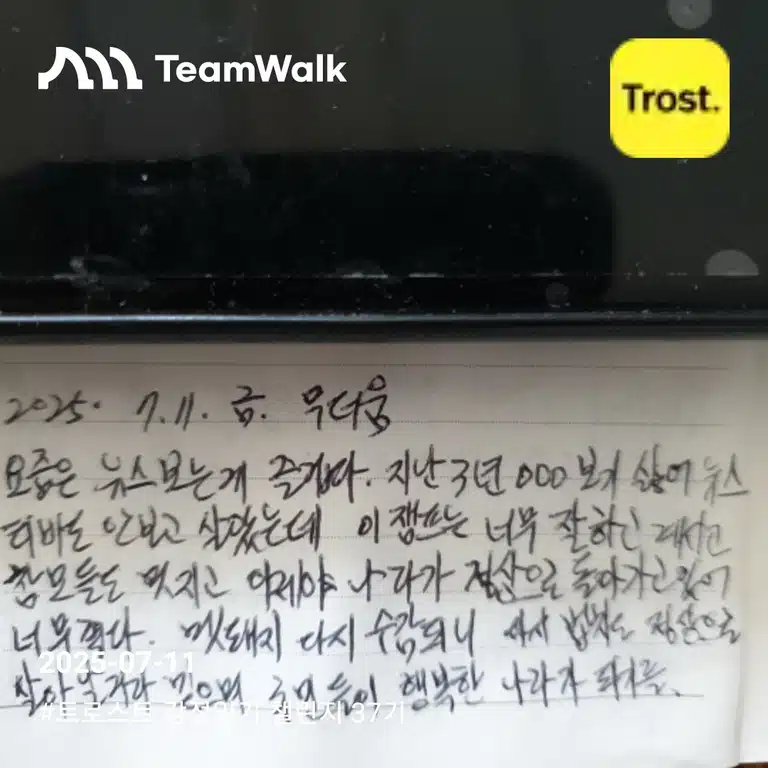 TeamWalk
Trost.
2025. 7. 11. 금. 무더움
요즘은 뉴스 보는게 즐겁다. 지난 3년 000 보기 싫어 뉴스
티비도 안보고 살았는데 이잼프는 너무 잘하고 계시고
참모들도 멋지고 이제야 나라가 정상으로 돌아가고 있어
너무 기쁘다. 멧돼지 다시 수감되니 사법부도 정상으로
2025-07-11
믿으며 국민들이 행복한 나라가 되기를.
#트로스트 감정일기 챌린지 37기